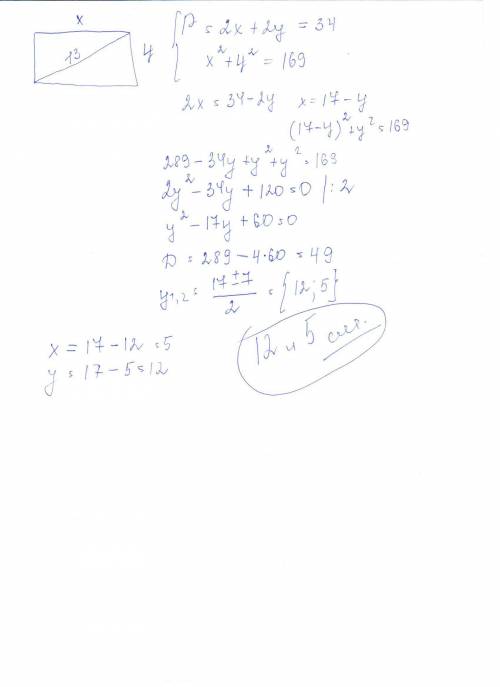 x
13
y
P = 2x + 2y = 34
x² + y² = 169
2x = 34 - 2y x = 17 - y
(17 - y)² + y² = 169
289 - 34y + y² + y² = 169
2y² - 34y + 120 = 0 /: 2
y² - 17y + 60 = 0
D = 289 - 4·60 = 49
y₁,₂ = (17 ± 7)/2 = {12; 5}
x = 17 - 12 = 5
y = 17 - 5 = 12
12 и 5 см.